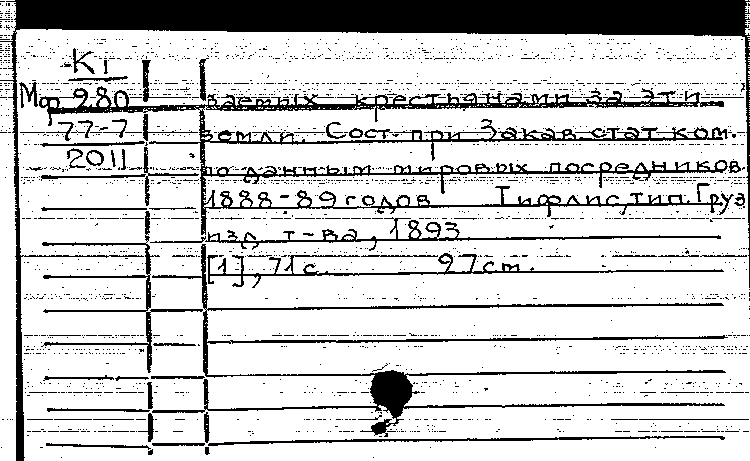 К1
Мф 280
77-7
2011
ваемых крестьянами за эти
земли. Сост. при Закав. стат. ком.
по данным мировых посредников
1888-89 годов Тифлис, тип. Груз
изд. т-ва, 1893.
[1], 71 с. 27 см.